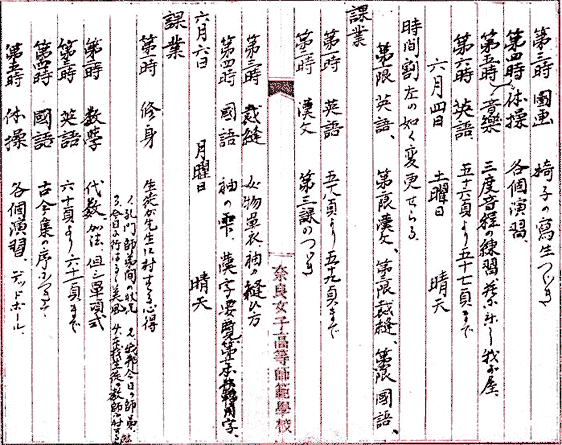 第三時 圖画 椅子の寫生つゞき
第四時 体操 各個演習
第五時 音樂 三度音程の練習
第六時 英語 五十六頁より五十七頁まで
六月四日 土曜日 晴天
時間割左の如く変更せらる
第一限 英語、第二限漢文、第三限裁縫、第四限國語、
課業
第一時 英語 五十八頁より五十九頁まで
第二時 漢文 第三課のつゞき
奈良女子高等師範學校
第三時 裁縫 單衣袖の縫ひ方
第四時 國語 袖の雫、漢字要覽
六月六日 月曜日 晴天
課業
第一時 修身 生徒が先生に対する心得
第二時 数學 代数 加法、但シ單項式
第三時 英語 六十頁より六十一頁まで
第四時 國語 古今集の序
第五時 体操 各個演習、デッドボール、